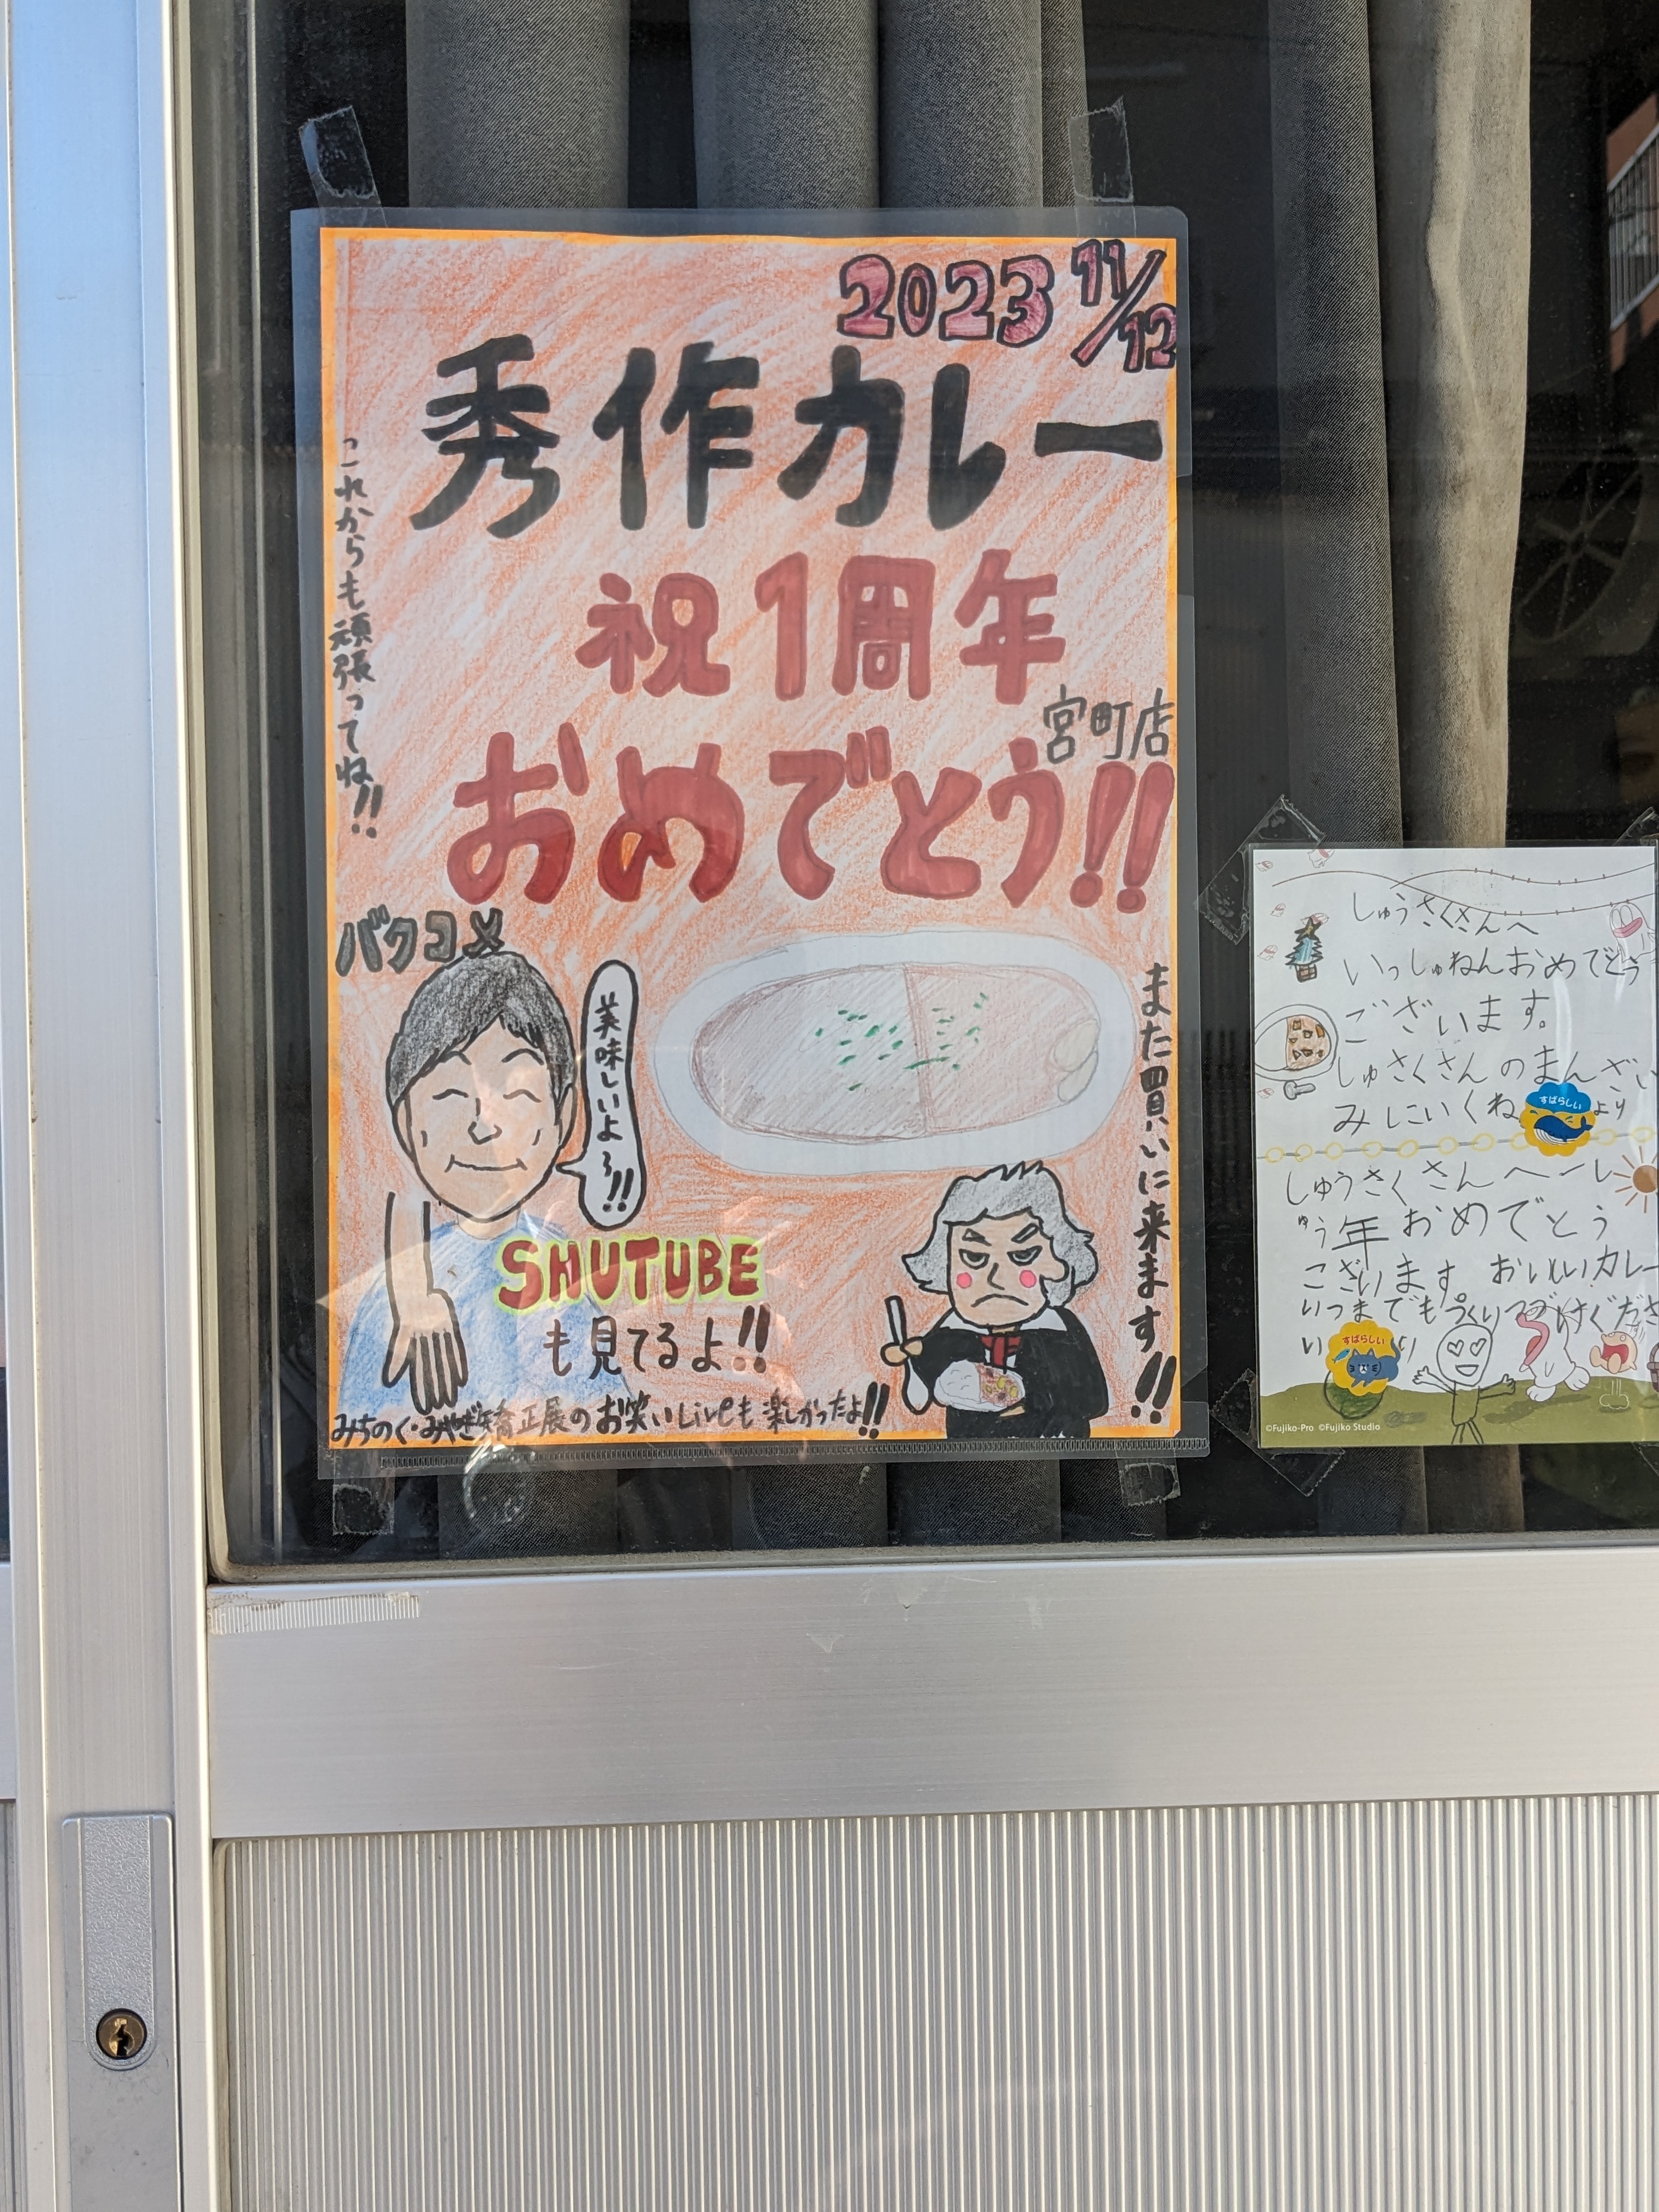 2023 11/12
秀作カレー
祝1周年
宮町店
おめでとう!!
これからも頑張ってね!!
バクコメ
美味しいよ〜!!
また買いに来ます!!
SHUTUBE
も見てるよ!!
みちのく・みやぎ矯正展のお笑いLiveも楽しかったよ!!
しゅうさくさんへ
いっしゅねんおめでとう
ございます。
しゅさくさんのまんざい
みにいくね
すばらしい
より
しゅうさくさんへーし
ゅう年おめでとう
ございます おいしいカレー
いつまでもつくりつづけくださ
い
すばらしい
より
©Fujiko-Pro ©Fujiko Studio